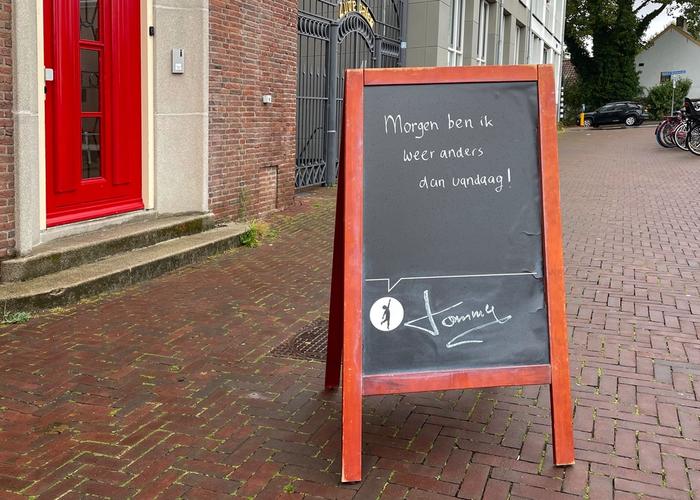 Morgen ben ik
weer anders
dan vandaag!
Tommy